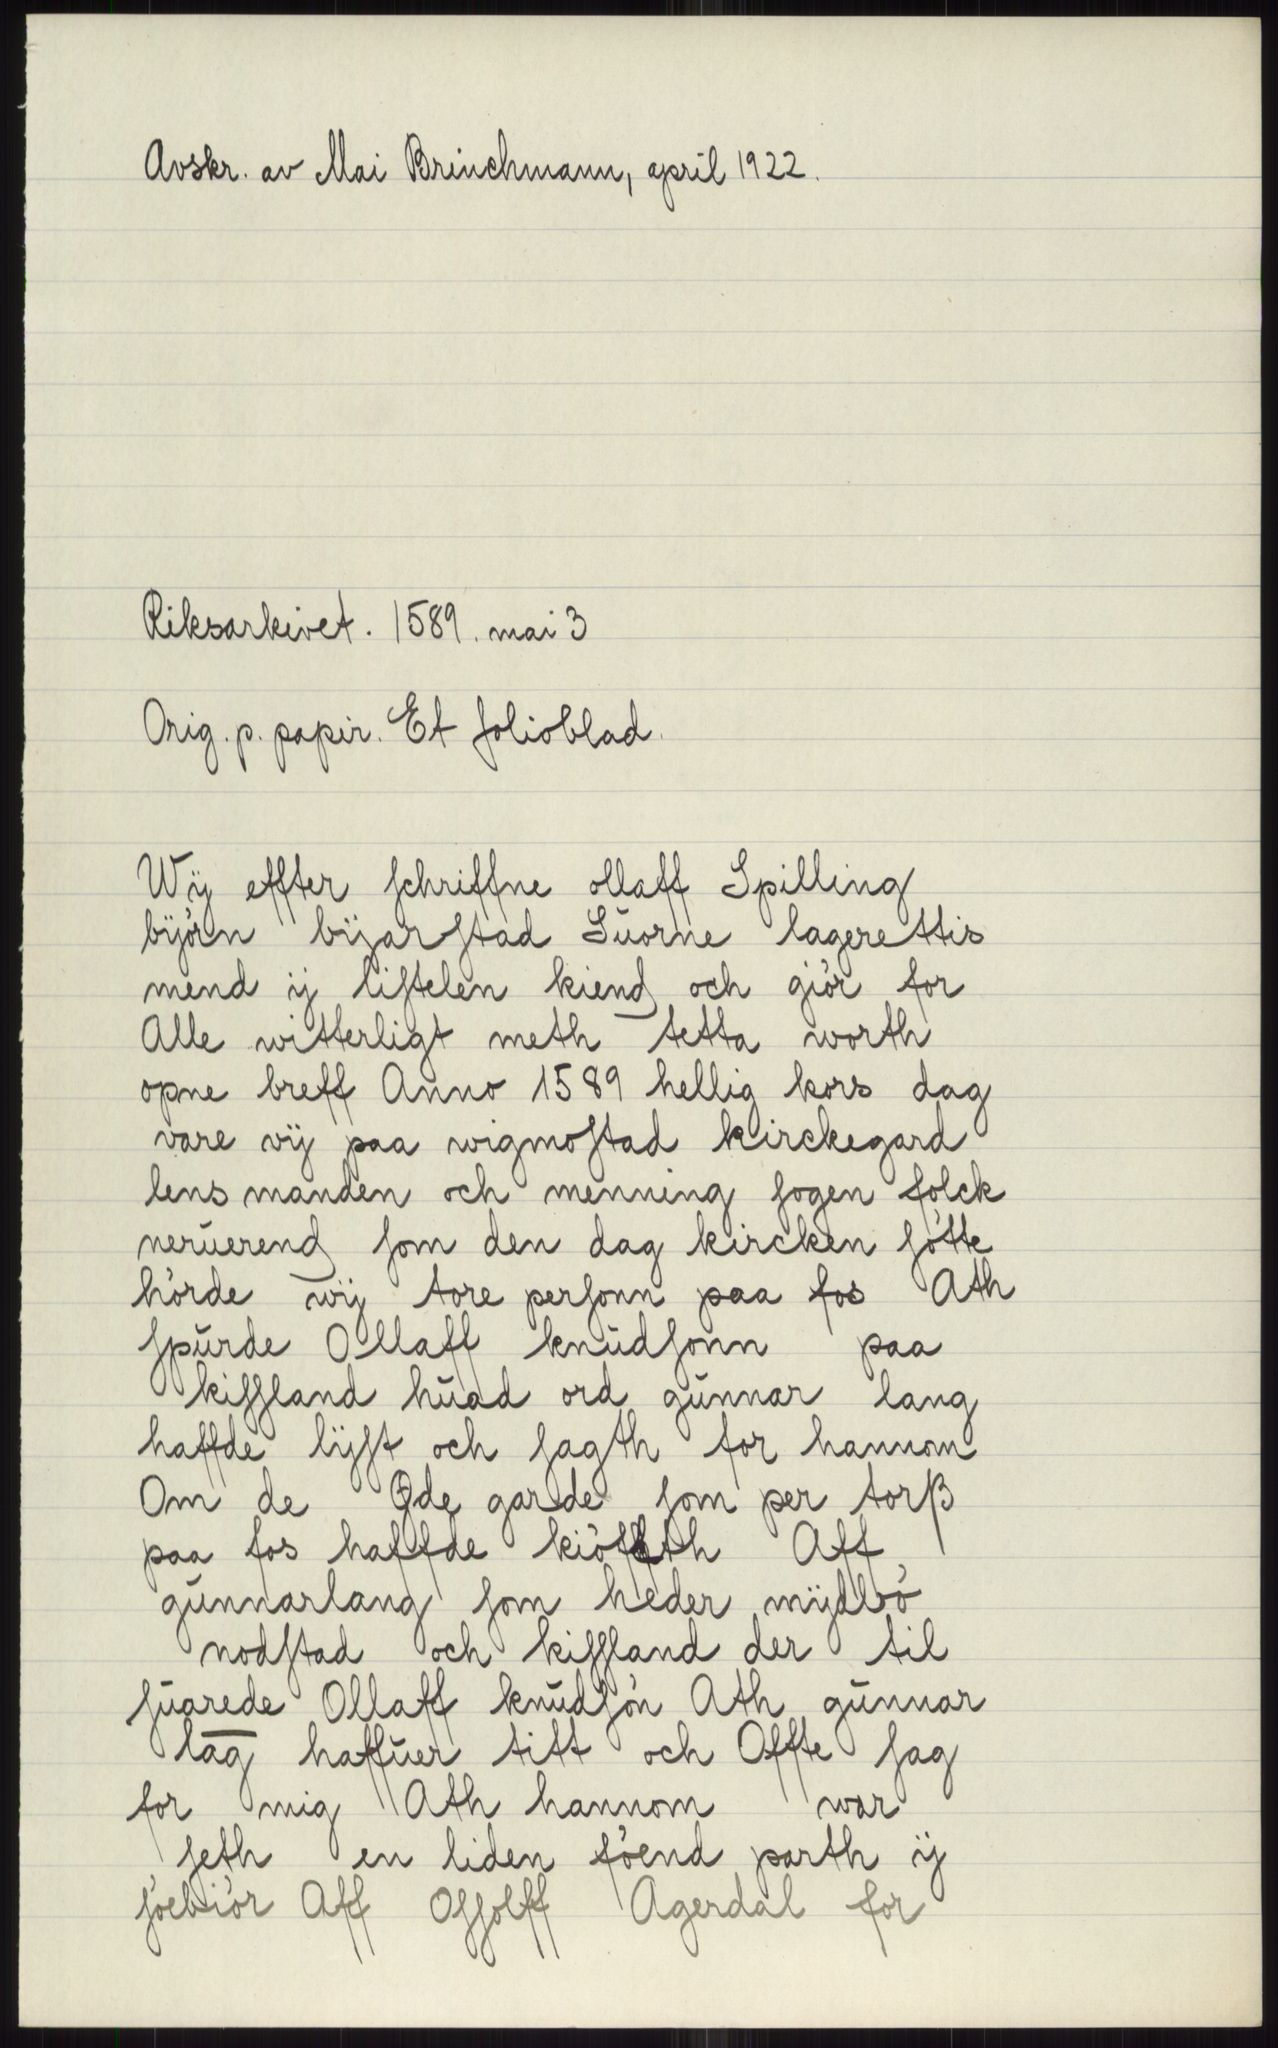 Avskr. av Mai Brinchmann, april 1922.
Riksarkivet. 1589. mai 3
Orig. p. papir. Et folioblad.
Wÿ effter schriffne ollaff Spilling
byórn bÿarstad Suorne lagerettis
mend ÿ listelen kiend och giór for
Alle witterligt meth tetta worth
opne breff Anno 1589 hellig kors dag
vare vÿ paa wigmostad kirckegard
lens manden och menning sogen folck
neruerend som den dag kircken sótte
hórde wÿ tore personn paa fos Ath
spurde Ollaff knudsonn paa
kissland huad ord gunnar lang
haffde lÿst och sagth for hannom
Om de Ode garde som per torß
paa fos haffde kióffth Aff
gunnarlang som heder mÿdbó
nodstad och kissland der til
suarede Ollaff knudsón Ath gunnar
lāg haffuer titt och Offte sag
for mig Ath hannom war
seth en liden fóend parth ÿ
sóebiór Aff Ossolff Agerdal for